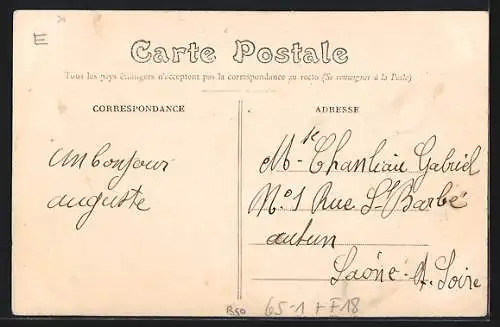 E
Carte Postale
Tous les pays étrangers n'acceptent pas la correspondance au recto (Se renseigner à la Poste)
CORRESPONDANCE
ADRESSE
un bonjour
auguste
Gabriel
N.º 1 Rue St Barbe
autun
Saône-&-Loire
R50 65-1 + F18